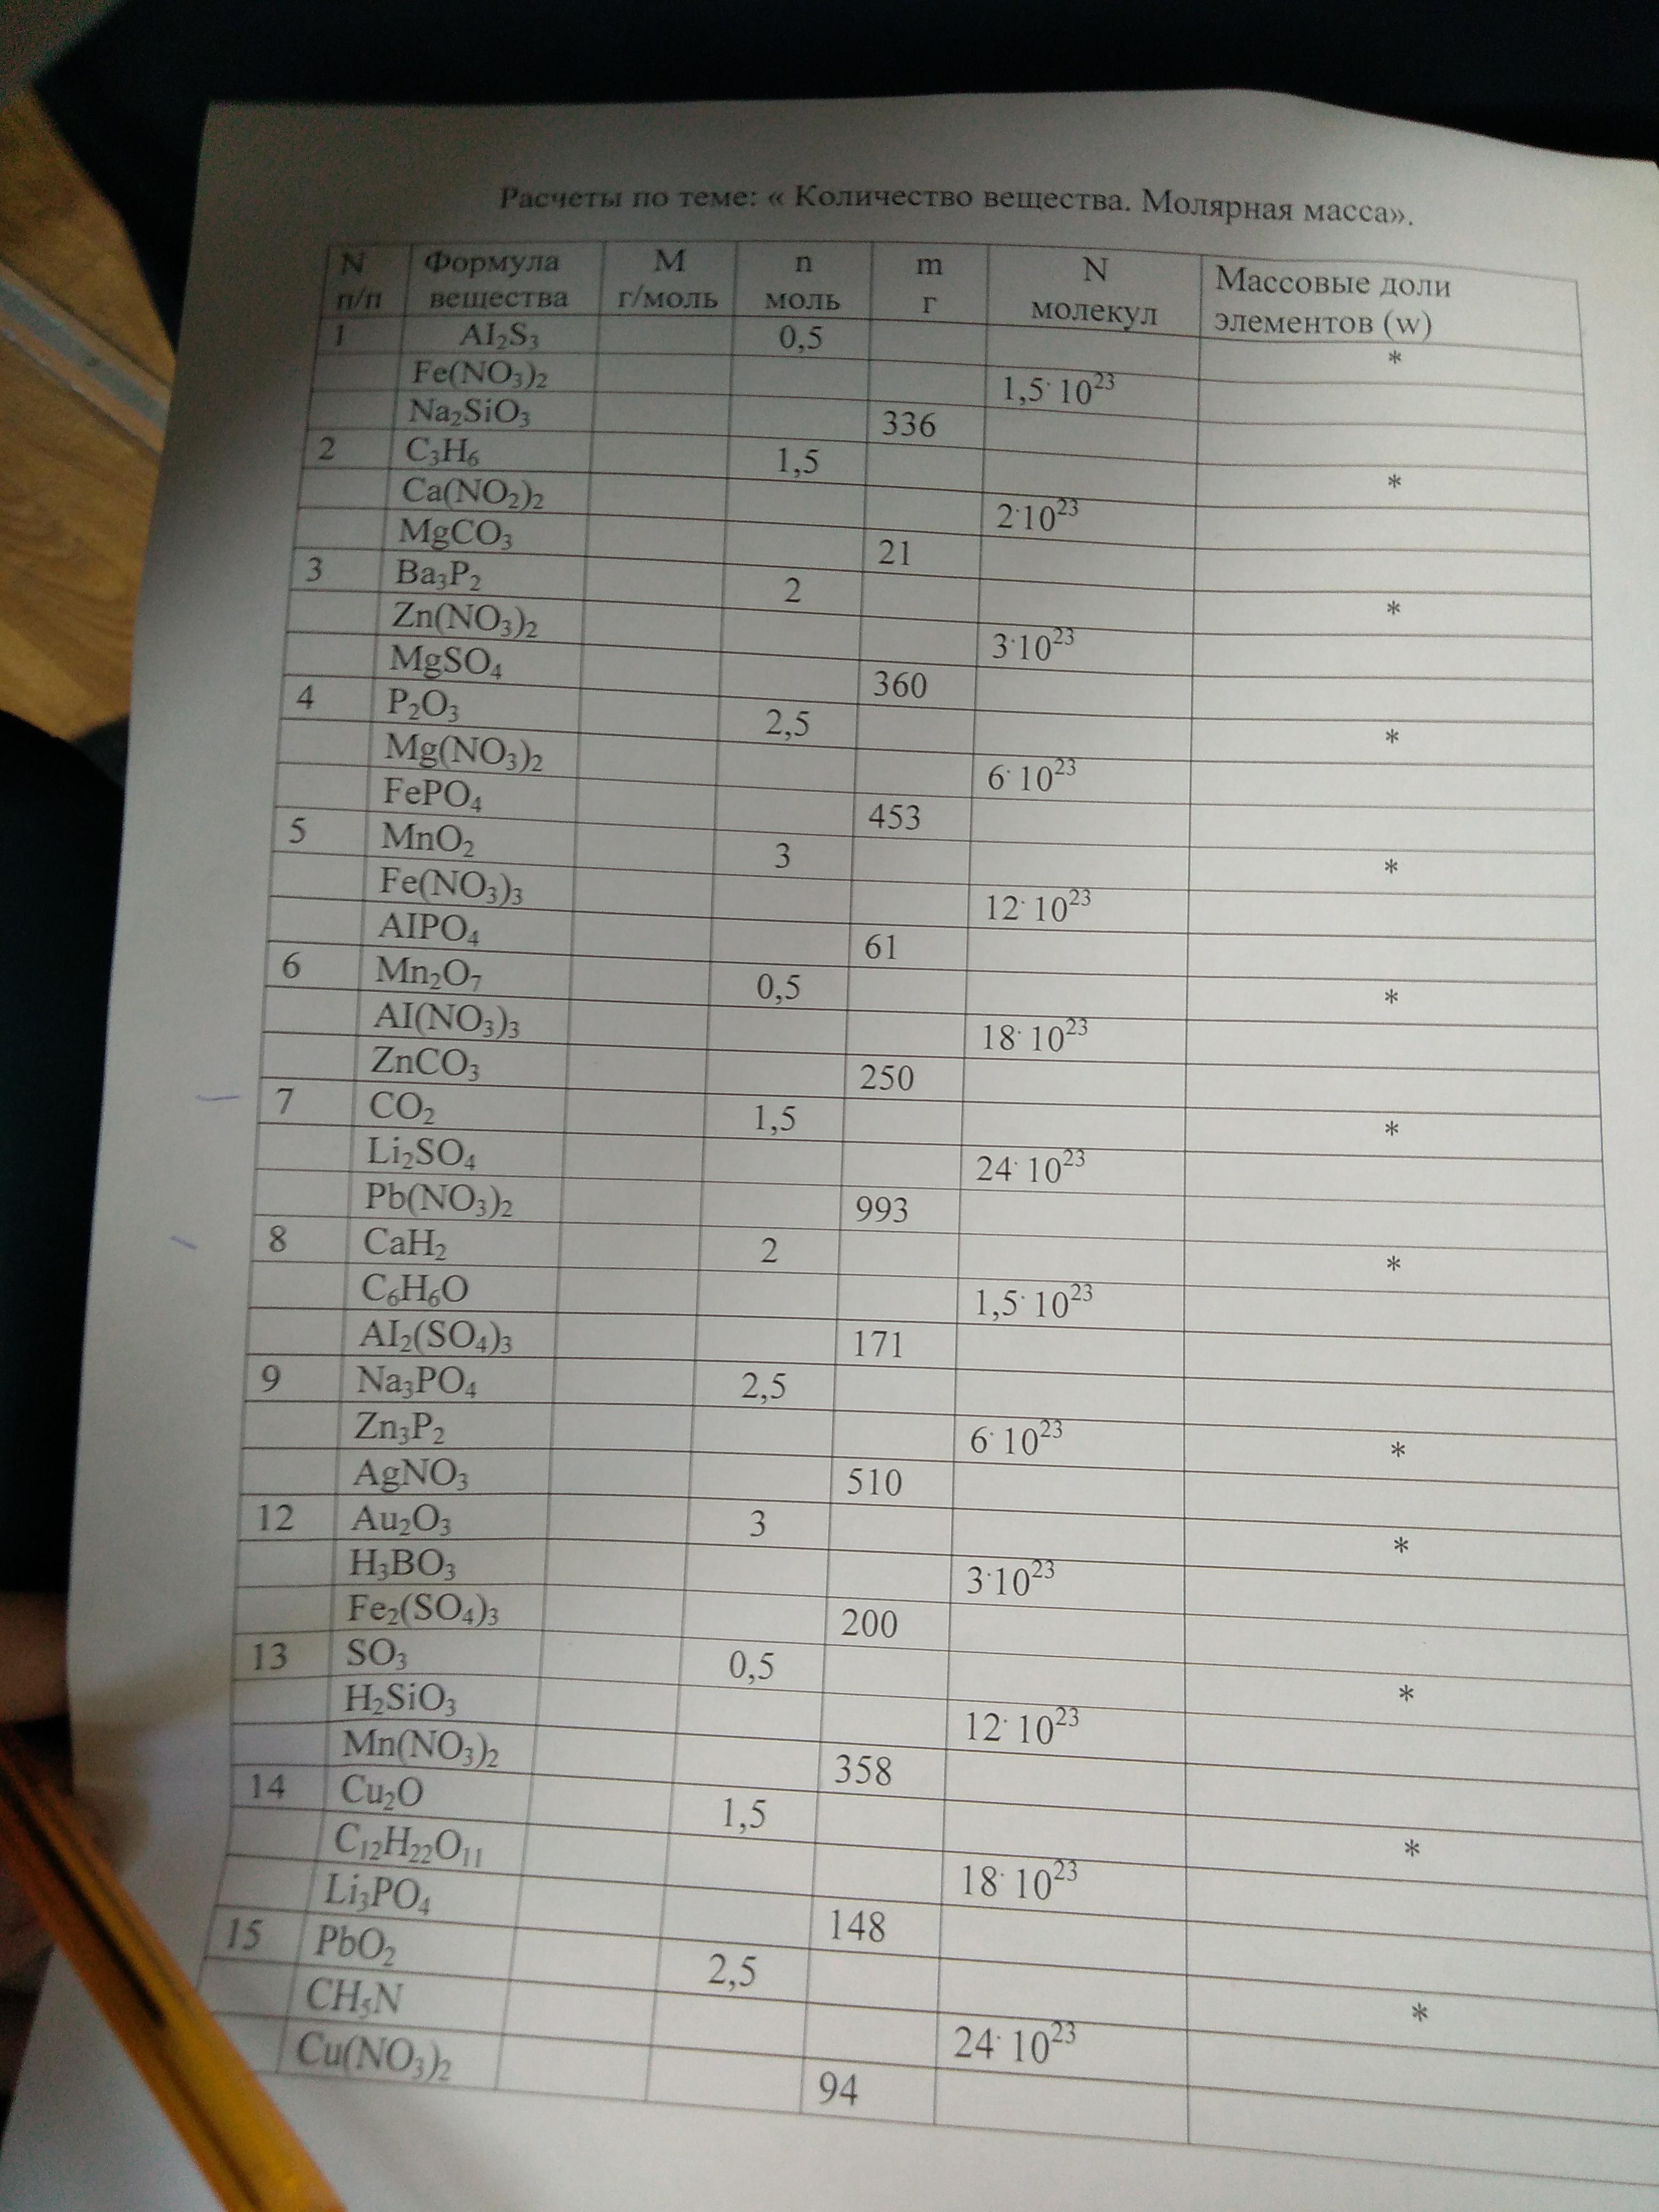 Расчеты по теме: « Количество вещества. Молярная масса».
N п/п Формула вещества M г/моль n моль m г N молекул Массовые доли элементов (w)
1 Al₂S₃ 0,5 *
Fe(NO₃)₂ 1,5· 10²³
Na₂SiO₃ 336
2 C₃H₆ 1,5 *
Ca(NO₂)₂ 2·10²³
MgCO₃ 21
3 Ba₃P₂ 2 *
Zn(NO₃)₂ 3·10²³
MgSO₄ 360
4 P₂O₃ 2,5 *
Mg(NO₃)₂ 6· 10²³
FePO₄ 453
5 MnO₂ 3 *
Fe(NO₃)₃ 12· 10²³
AlPO₄ 61
6 Mn₂O₇ 0,5 *
Al(NO₃)₃ 18· 10²³
ZnCO₃ 250
7 CO₂ 1,5 *
Li₂SO₄ 24· 10²³
Pb(NO₃)₂ 993
8 CaH₂ 2 *
C₆H₆O 1,5· 10²³
Al₂(SO₄)₃ 171
9 Na₃PO₄ 2,5
Zn₃P₂ 6· 10²³ *
AgNO₃ 510
12 Au₂O₃ 3 *
H₃BO₃ 3·10²³
Fe₂(SO₄)₃ 200
13 SO₃ 0,5 *
H₂SiO₃ 12· 10²³
Mn(NO₃)₂ 358
14 Cu₂O 1,5 *
C₁₂H₂₂O₁₁ 18· 10²³
Li₃PO₄ 148
15 PbO₂ 2,5 *
CH₅N 24· 10²³
Cu(NO₃)₂ 94